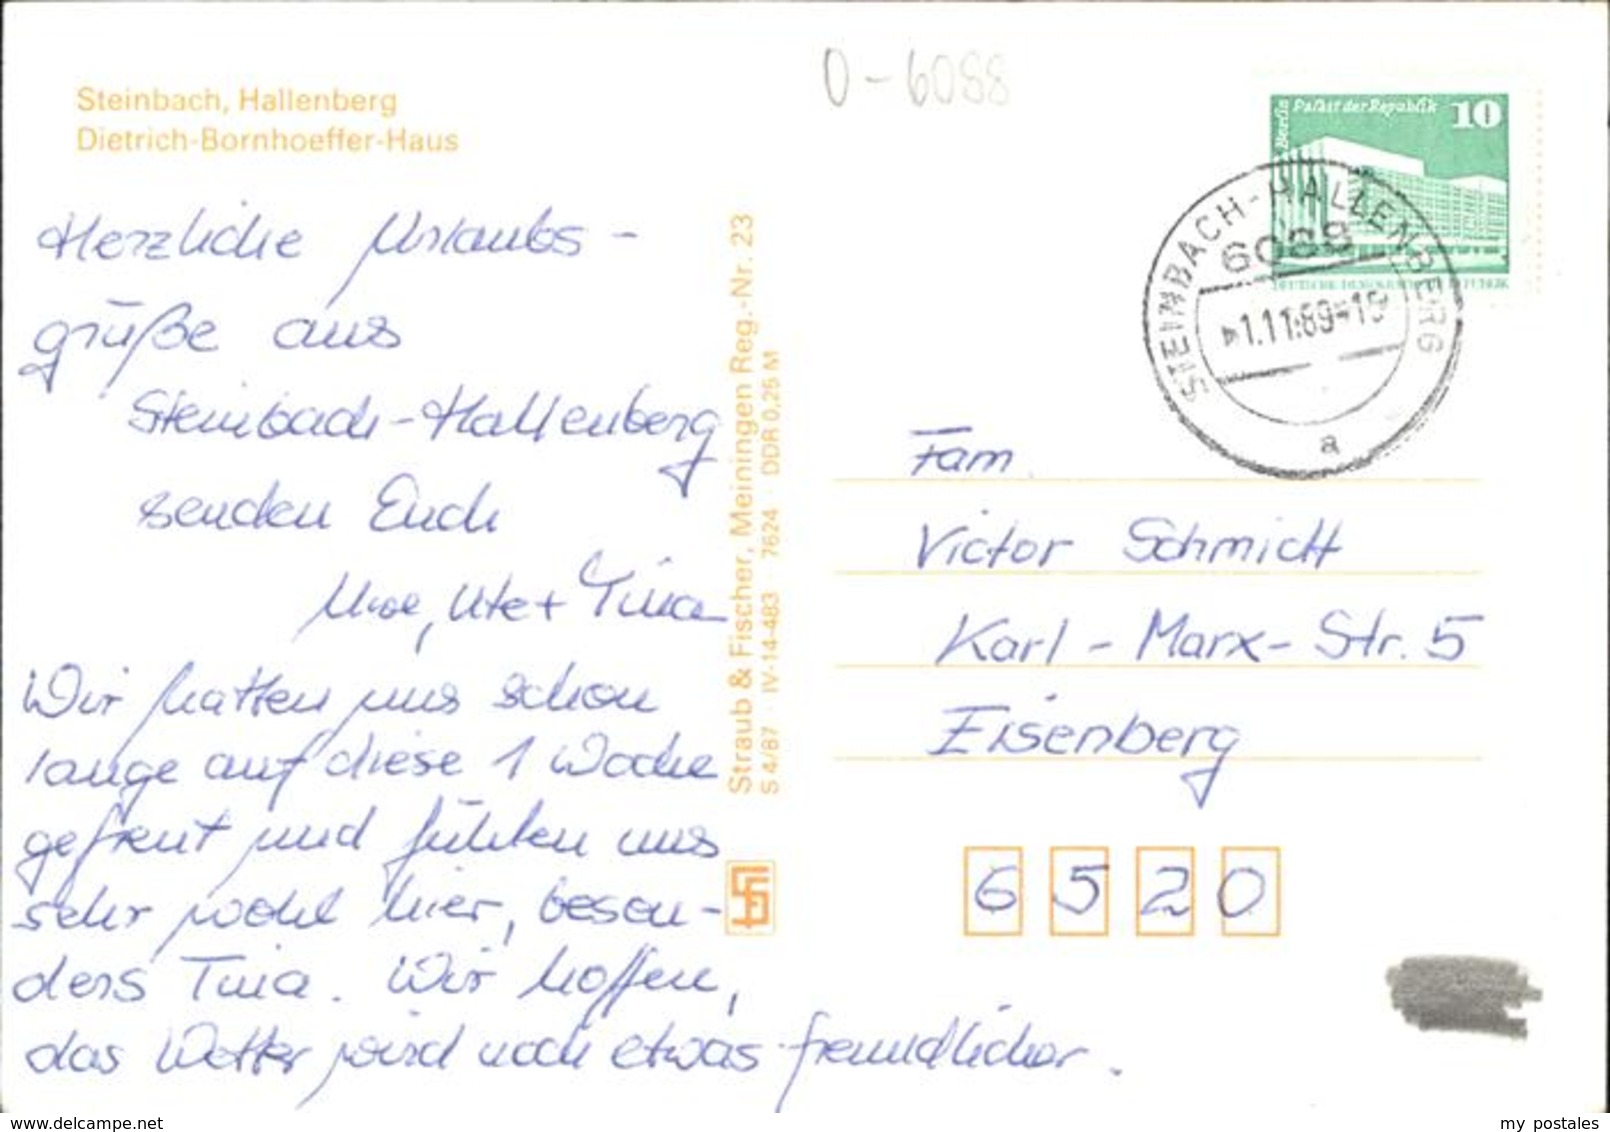 O-6088
Steinbach, Hallenberg
Dietrich-Bornhoeffer-Haus
Berlin Palast der Republik 10
DEUTSCHE DEMOKRATISCHE REPUBLIK
STEINBACH-HALLENBERG
6088
-1.11.89-19
a
Herzliche Urlaubs-
grüße aus
Steinbach-Hallenberg
senden Euch
Uwe, Ute + Tina
Wir hatten uns schon
lange auf diese 1 Woche
gefreut und fühlen uns
sehr wohl hier, beson-
ders Tina. Wir hoffen,
das Wetter wird noch etwas freundlicher.
Straub & Fischer, Meiningen Reg.-Nr. 23
S 4/87 · IV-14-483 · 7624 · DDR 0,25 M
Fam.
Victor Schmidt
Karl-Marx-Str. 5
Eisenberg
6520
www.delcampe.net
my postales